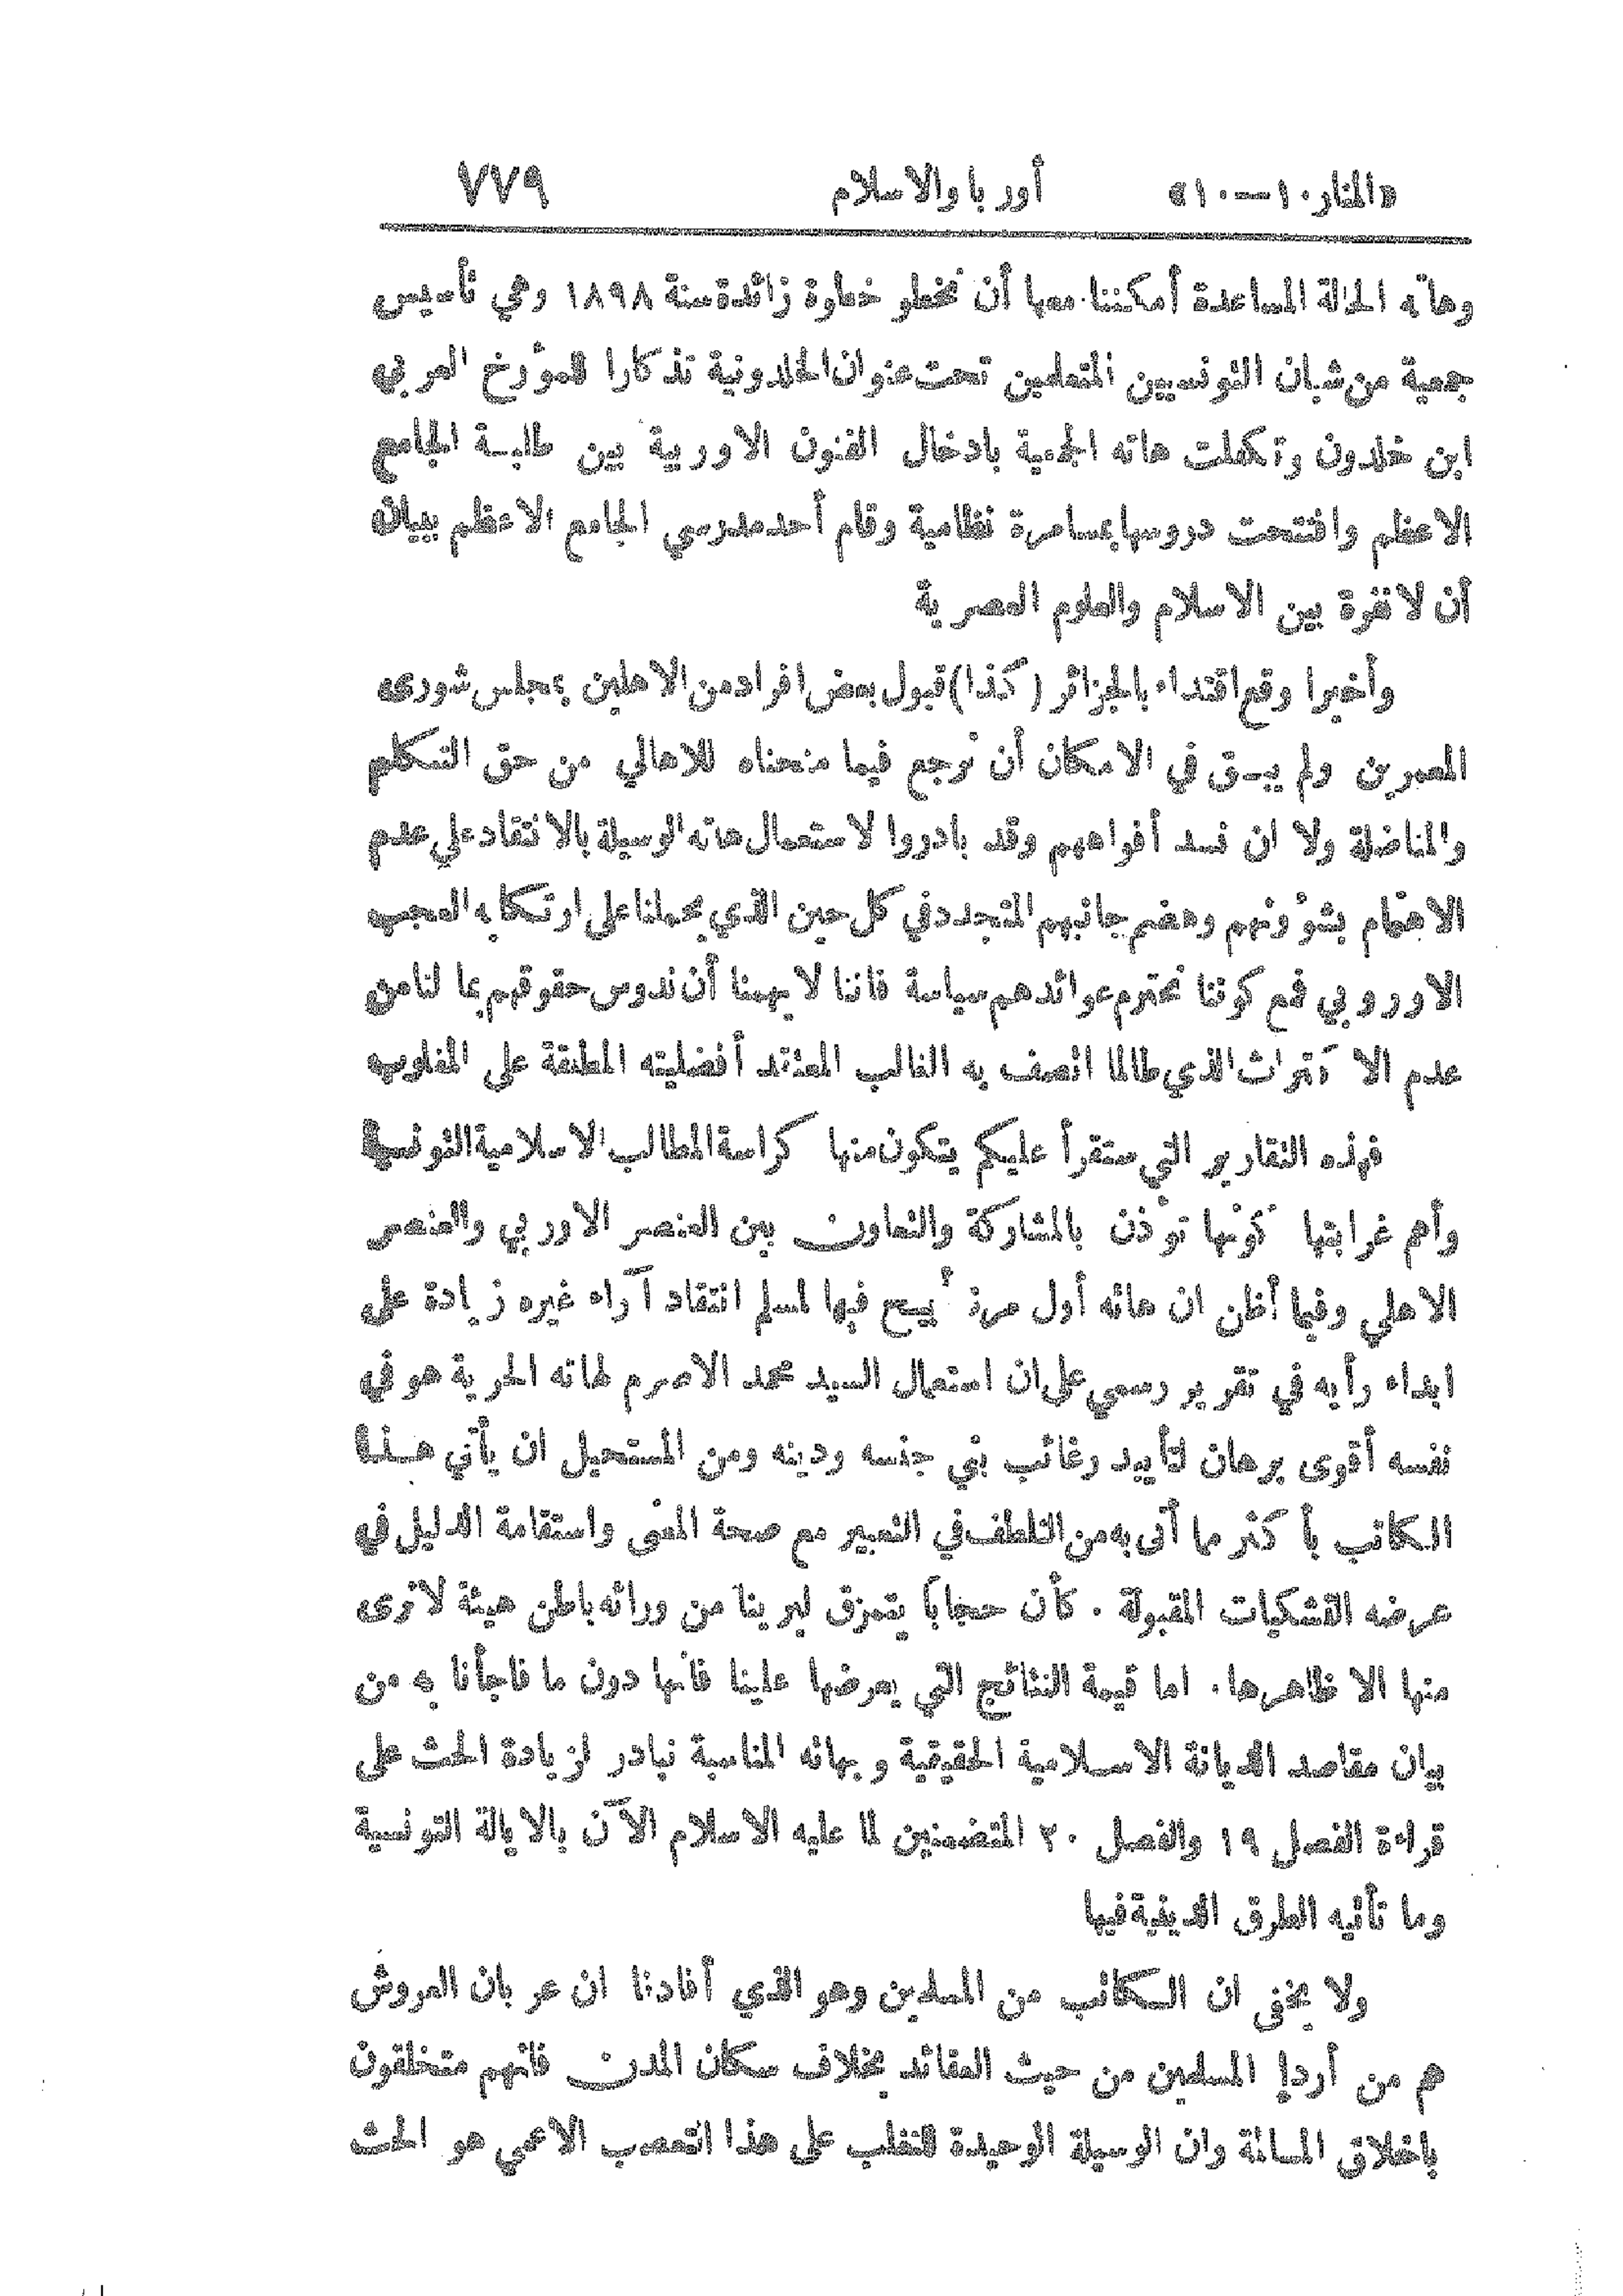 «المنار ١٠ — ١٠» أوربا والاسلام ٧٧٩
وهاته الحالة المساعدة أمكننا معها أن نخطو خطوة زائدة سنة ١٨٩٨ وهي تأسيس
جمعية من شبان التونسيين المتعلمين تحت عنوان الخلدونية تذكارا للمؤرخ العربي
ابن خلدون وتكفلت هاته الجمعية بادخال الفنون الاوربية بين طلبة الجامع
الاعظم وافتتحت دروسها بمسامرة نظامية وقام أحد مدرسي الجامع الاعظم ببيان
أن لا نفرة بين الاسلام والعلوم العصرية
وأخيرا وقع اقتداء بالجزائر (كذا) قبول بعض افراد من الاهلين بمجلس شورى
المعمرين ولم يبق في الامكان أن نرجع فيما منحناه للاهالي من حق التكلم
والمناضلة ولا ان نسد أفواههم وقد بادروا لاستعمال هاته الوسيلة بالانتقاد على عدم
الاهتمام بشؤونهم وهضم جانبهم المتجدد في كل حين الذي يحملنا على ارتكابه العجب
الاوروبي فمع كوننا نحترم عوائدهم سياسة فاننا لا يهمنا أن ندوس حقوقهم بما لنا من
عدم الاكتراث الذي طالما اتصف به الغالب المعتقد أفضليته المطلقة على المغلوب
فهذه التقارير التي ستقرأ عليكم يتكون منها كراسة المطالب الاسلامية التونسية
وأهم غرابتها كونها تؤذن بالمشاركة والتعاون بين العنصر الاوربي والعنصر
الاهلي وفيما أظن ان هاته أول مرة أبيح فيها لمسلم انتقاد آراء غيره زيادة على
ابداء رأيه في تقرير رسمي على ان استعمال السيد محمد الاصرم لهاته الحرية هو في
نفسه أقوى برهان لتأييد رغائب بني جنسه ودينه ومن المستحيل ان يأتي هذا
الكاتب بأكثر مما أتى به من التلطف في التعبير مع صحة المعنى واستقامة الدليل في
عرضه التشكيات المقبولة . كأن حجاباً يتمزق ليرينا من ورائه باطن هيئة لا نرى
منها الا ظاهرها . اما قيمة النتائج التي يعرضها علينا فانها دون ما فاجأنا به من
بيان مقاصد الديانة الاسلامية الحقيقية وبهاته المناسبة نبادر لزيادة الحث على
قراءة الفصل ١٩ والفصل ٢٠ المتضمنين لما عليه الاسلام الآن بالايالة التونسية
وما تأتيه الطرق الدينية فيها
ولا يخفى ان الكاتب من المسلمين وهو الذي أفادنا ان عربان العروش
هم من أردإ المسلمين من حيث العقائد بخلاف سكان المدن فانهم متخلقون
بأخلاق المسالمة وان الوسيلة الوحيدة للتغلب على هذا التعصب الاعمى هو الحث